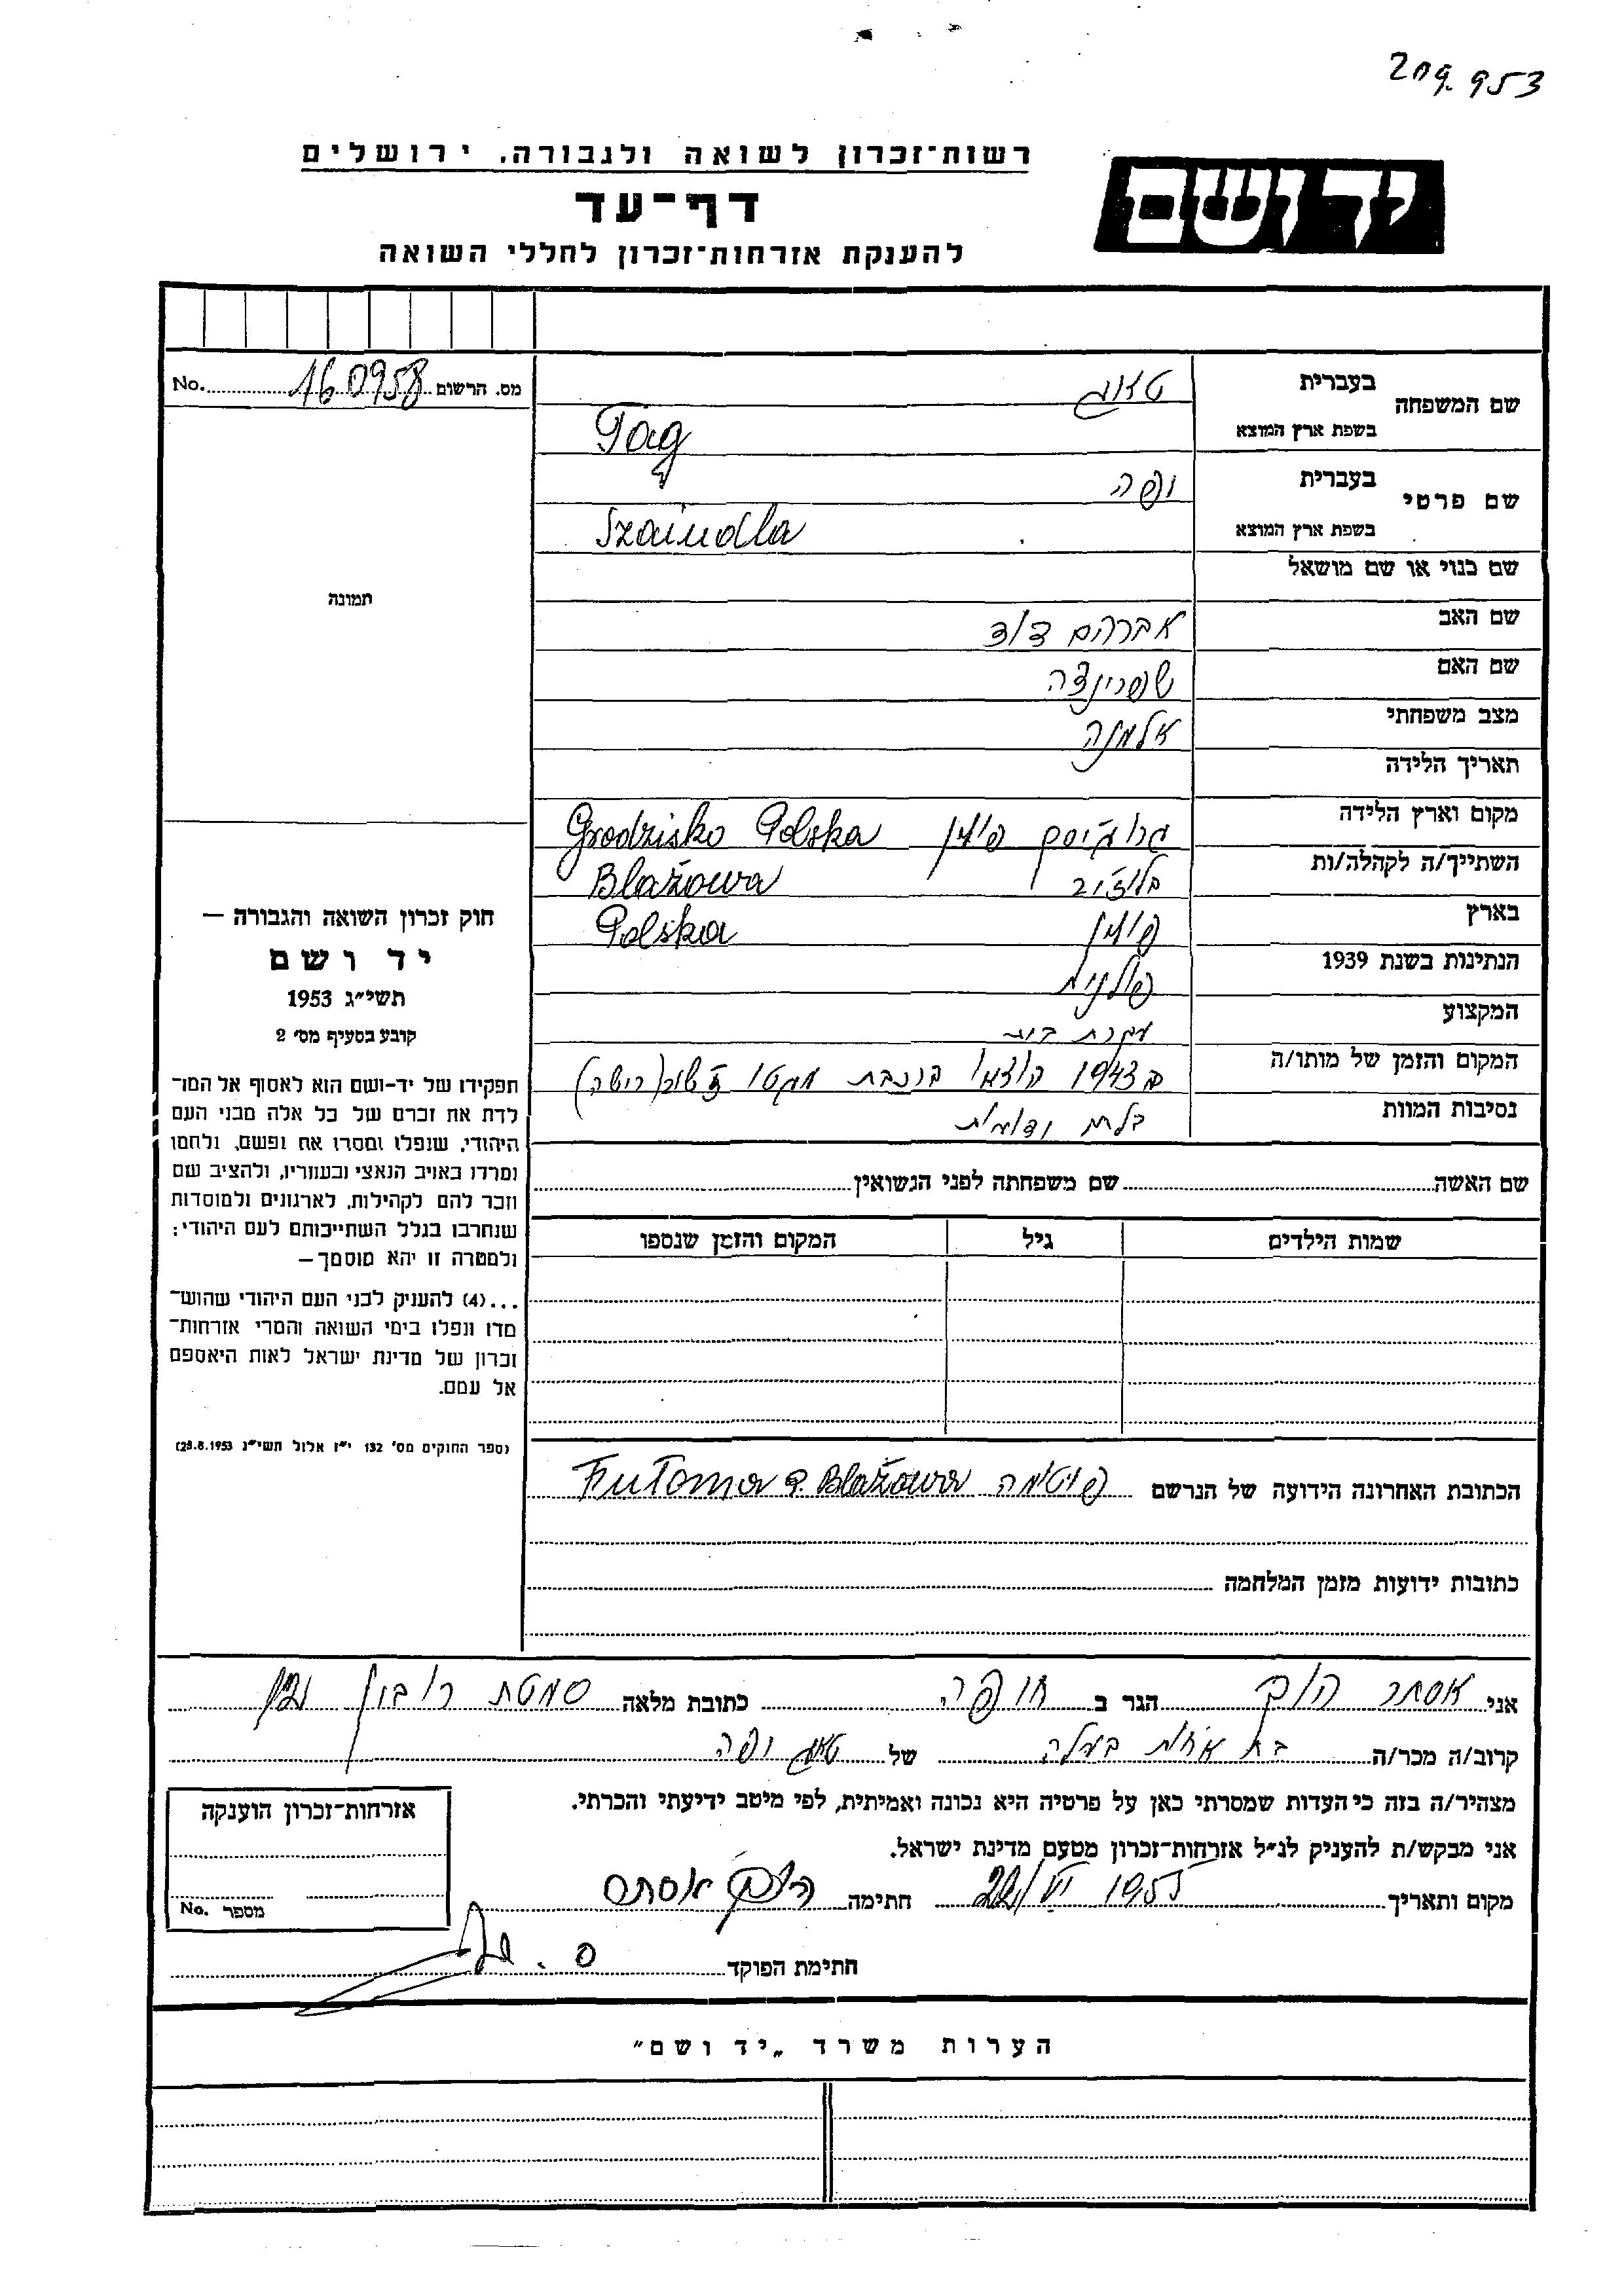 209.953
רשות־זכרון לשואה ולגבורה, ירושלים
יד ושם
דף־עד
להענקת אזרחות־זכרון לחללי השואה
מס. הרשום 160958 No.
שם המשפחה
בעברית טאג
בשפת ארץ המוצא Tag
שם פרטי
בעברית יפה
בשפת ארץ המוצא Szaindla
שם כנוי או שם מושאל
שם האב אברהם דוד
שם האם שפרינצה
מצב משפחתי אלמנה
תאריך הלידה
מקום וארץ הלידה פולין Grodzisko Polska
השתייך/ה לקהלה/ות בלוז'וב Blažowa
בארץ פולין Polska
הנתינות בשנת 1939 פולנית
המקצוע עקרת בית
המקום והזמן של מותו/ה ב 1943 ברכבת מגטו
נסיבות המוות
שם האשה שם משפחתה לפני הנשואין
שמות הילדים גיל המקום והזמן שנספו
הכתובת האחרונה הידועה של הנרשם פוטומה Futoma P. Blažowa
כתובות ידועות מזמן המלחמה
תמונה
חוק זכרון השואה והגבורה —
יד ושם
תשי"ג 1953
קובע בסעיף מס' 2
תפקידו של יד-ושם הוא לאסוף אל המו־
לדת את זכרם של כל אלה מבני העם
היהודי, שנפלו ומסרו את נפשם, נלחמו
ומרדו באויב הנאצי ובעוזריו, ולהציב שם
וזכר להם לקהילות, לארגונים ולמוסדות
שנחרבו בגלל השתייכותם לעם היהודי;
ולמטרה זו יהא מוסמך—
...(4) להעניק לבני העם היהודי שהוש־
מדו ונפלו בימי השואה והמרי אזרחות־
זכרון של מדינת ישראל לאות היאספם
אל עמם.
(ספר החוקים מס' 132 י"ז אלול תשי"ג 28.8.1953)
אני אסתר הגר ב חיפה כתובת מלאה סמטת
קרוב/ה מכר/ה בת אחות בעלה של טאג יפה
מצהיר/ה בזה כי העדות שמסרתי כאן על פרטיה היא נכונה ואמיתית, לפי מיטב ידיעתי והכרתי.
אני מבקש/ת להעניק לנ"ל אזרחות־זכרון מטעם מדינת ישראל.
מקום ותאריך 1955 חתימה אסתר
חתימת הפוקד
אזרחות־זכרון הוענקה
מספר No.
הערות משרד „יד ושם"